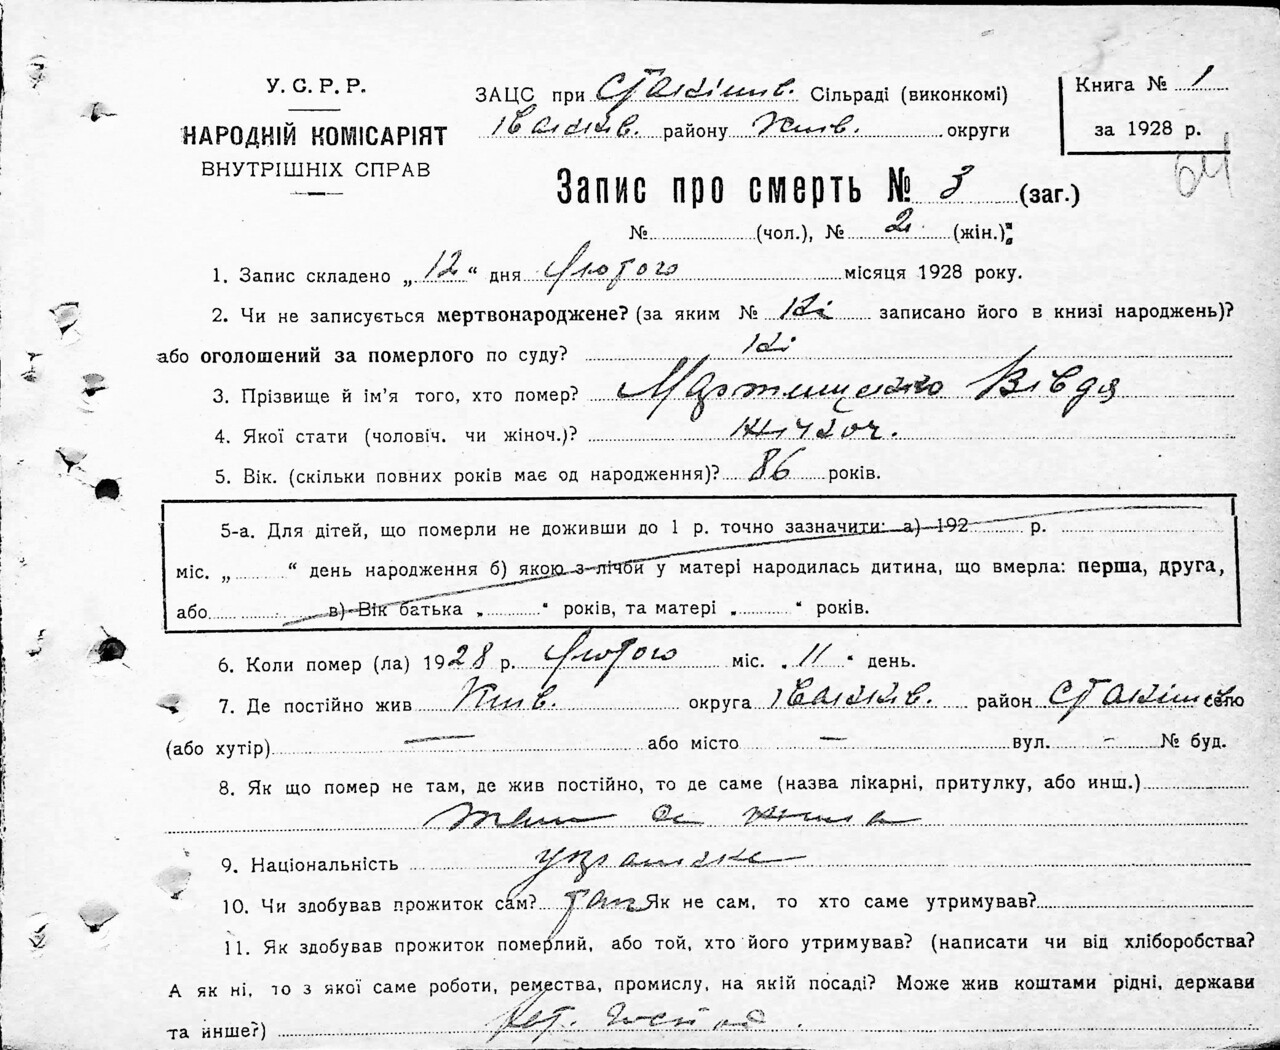 У. С. Р. Р.
НАРОДНІЙ КОМІСАРІЯТ
ВНУТРІШНІХ СПРАВ
ЗАЦС при Сільраді (виконкомі)
району Київ. округи
Книга № 1
за 1928 р.
64
Запис про смерть № 3 (заг.)
№ (чол.), № 2 (жін.):
1. Запис складено „12“ дня Лютого місяця 1928 року.
2. Чи не записується мертвонароджене? (за яким № Ні записано його в книзі народжень)?
або оголошений за померлого по суду? Ні
3. Прізвище й ім’я того, хто помер? Мартиненко Вівдя
4. Якої стати (чоловіч. чи жіноч.)? жіноч.
5. Вік. (скільки повних років має од народження)? 86 років.
5-а. Для дітей, що померли не доживши до 1 р. точно зазначити: а) 192 р.
міс. „ “ день народження б) якою з лічби у матері народилась дитина, що вмерла: перша, друга,
або в) Вік батька „ “ років, та матері „ “ років.
6. Коли помер (ла) 1928 р. Лютого міс. „11“ день.
7. Де постійно жив Київ. округа район селю
(або хутір) — або місто — вул. - № буд.
8. Як що помер не там, де жив постійно, то де саме (назва лікарні, притулку, або инш.)
там де жила
9. Національність українка
10. Чи здобував прожиток сам? так Як не сам, то хто саме утримував?
11. Як здобував прожиток померлий, або той, хто його утримував? (написати чи від хліборобства?
А як ні, то з якої саме роботи, ремества, промислу, на якій посаді? Може жив коштами рідні, держави
та инше?)